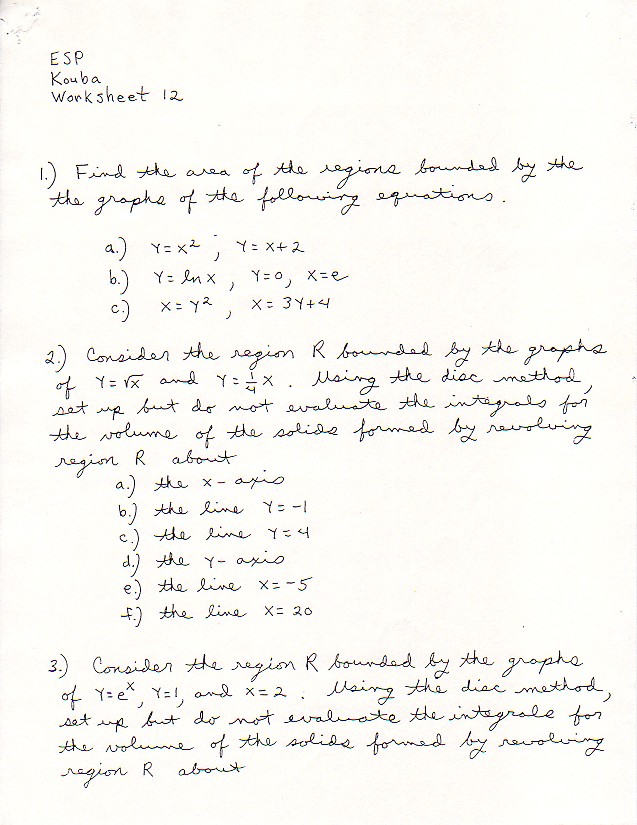 ESP
Kouba
Worksheet 12
1.) Find the area of the regions bounded by the
the graphs of the following equations.
a.) Y = x² , Y = x+2
b.) Y = ln x , Y=0, X=e
c.) X = Y² , X = 3Y+4
2.) Consider the region R bounded by the graphs
of Y=√x and Y = 1/4 x . Using the disc method,
set up but do not evaluate the integrals for
the volume of the solids formed by revolving
region R about
a.) the x-axis
b.) the line Y = -1
c.) the line Y = 4
d.) the Y-axis
e.) the line X = -5
f.) the line X = 20
3.) Consider the region R bounded by the graphs
of Y=eˣ, Y=1, and X=2 . Using the disc method,
set up but do not evaluate the integrals for
the volume of the solids formed by revolving
region R about